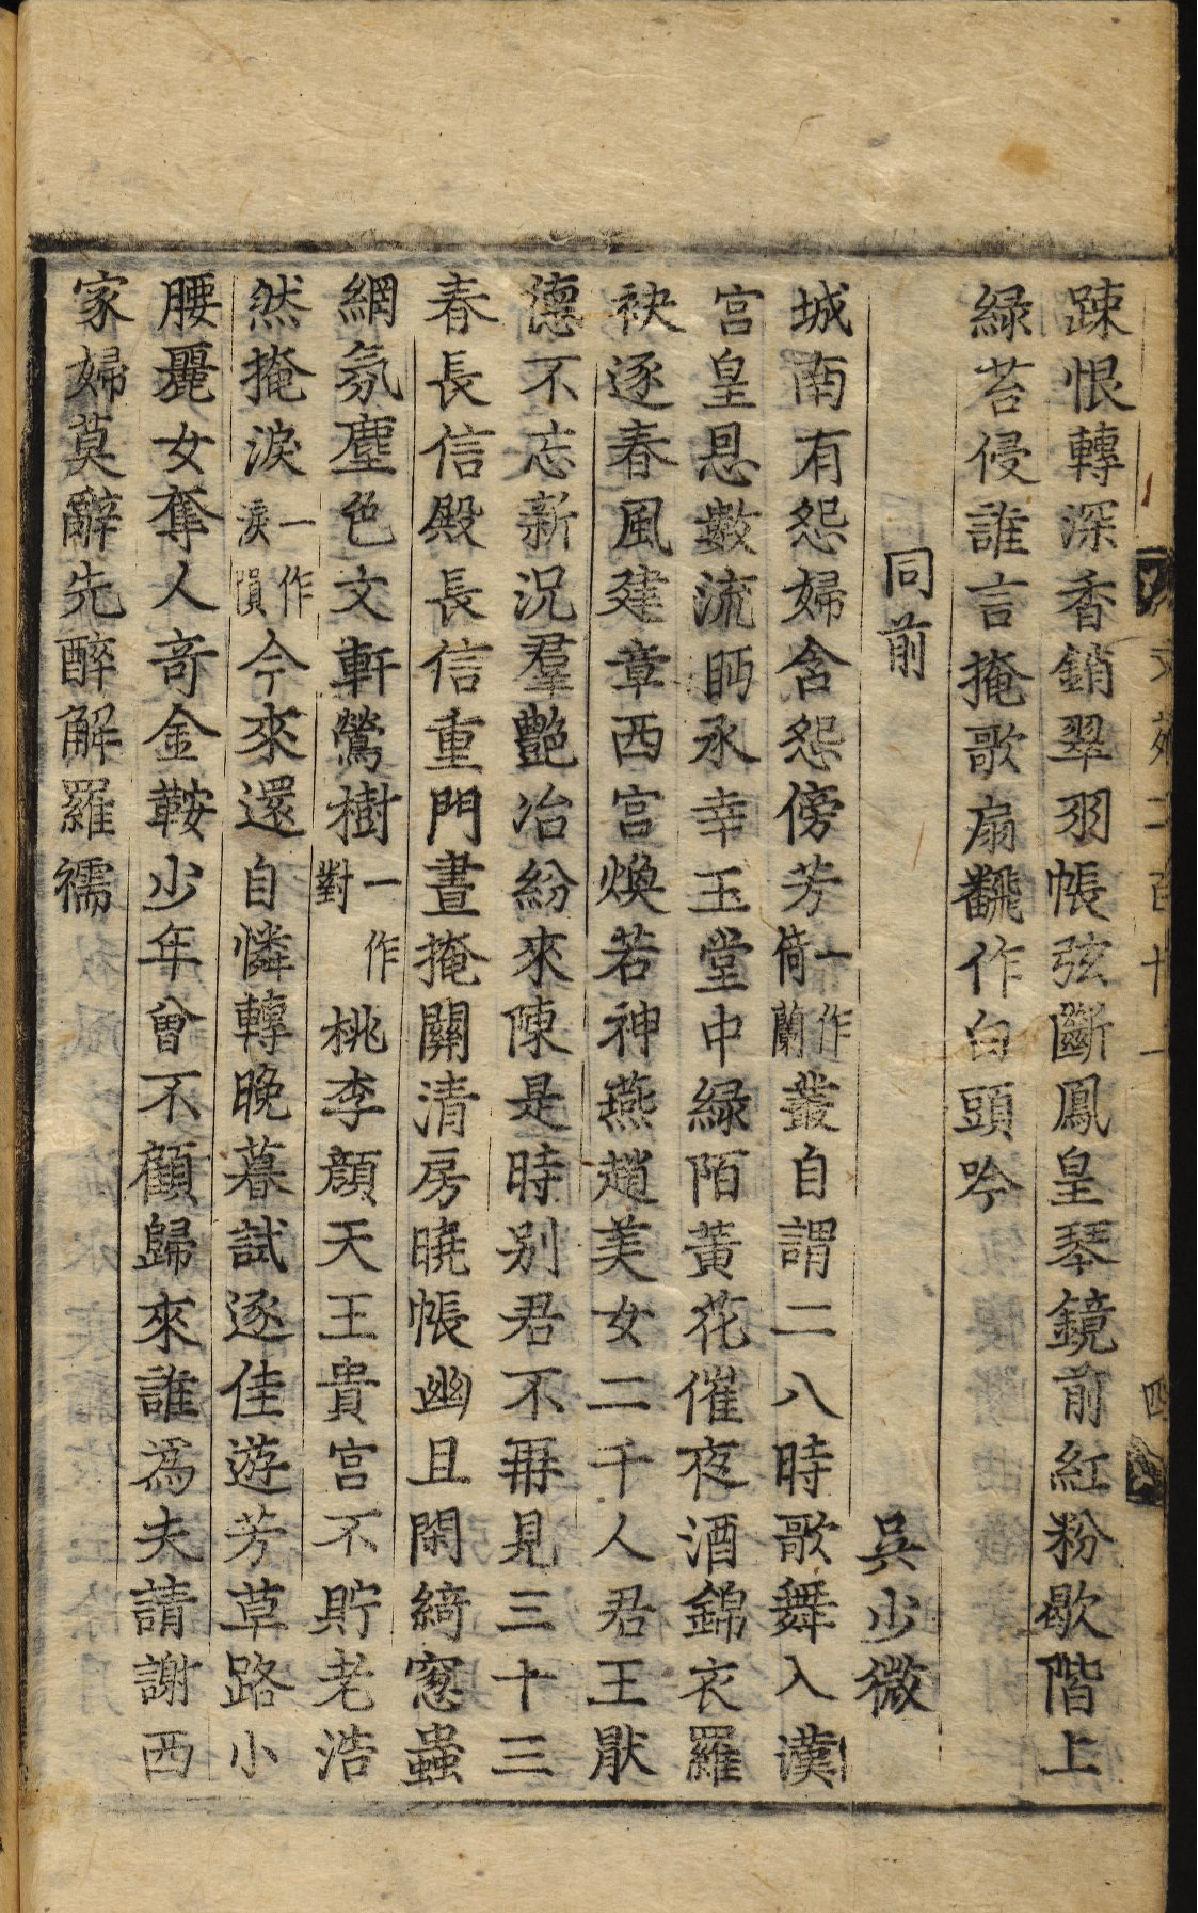 踈恨轉深香銷翠羽帳弦斷鳳皇琴鏡前紅粉歇階上
緑苔侵誰言掩歌扇飜作白頭吟
同前 吳少微
城南有怨婦含怨傍芳一作倚蘭叢自謂二八時歌舞入漢
宮皇恩數流眄承幸玉堂中緑陌黃花催夜酒錦衣羅
袂逐春風建章西宮煥若神燕趙美女二千人君王厭
德不忘新况羣艷冶紛來陳是時别君不再見三十三
春長信殿長信重門晝掩關清房曉帳幽且閑綺窻蟲
網氛塵色文軒鶯樹一作對桃李顔天王貴宮不貯老浩
然掩淚一作淚隕今來還自憐轉晚暮試逐佳遊芳草路小
腰麗女奪人奇金鞍少年曾不顧歸來誰為夫請謝西
家婦莫辭先醉解羅襦
文苑二百十一 四